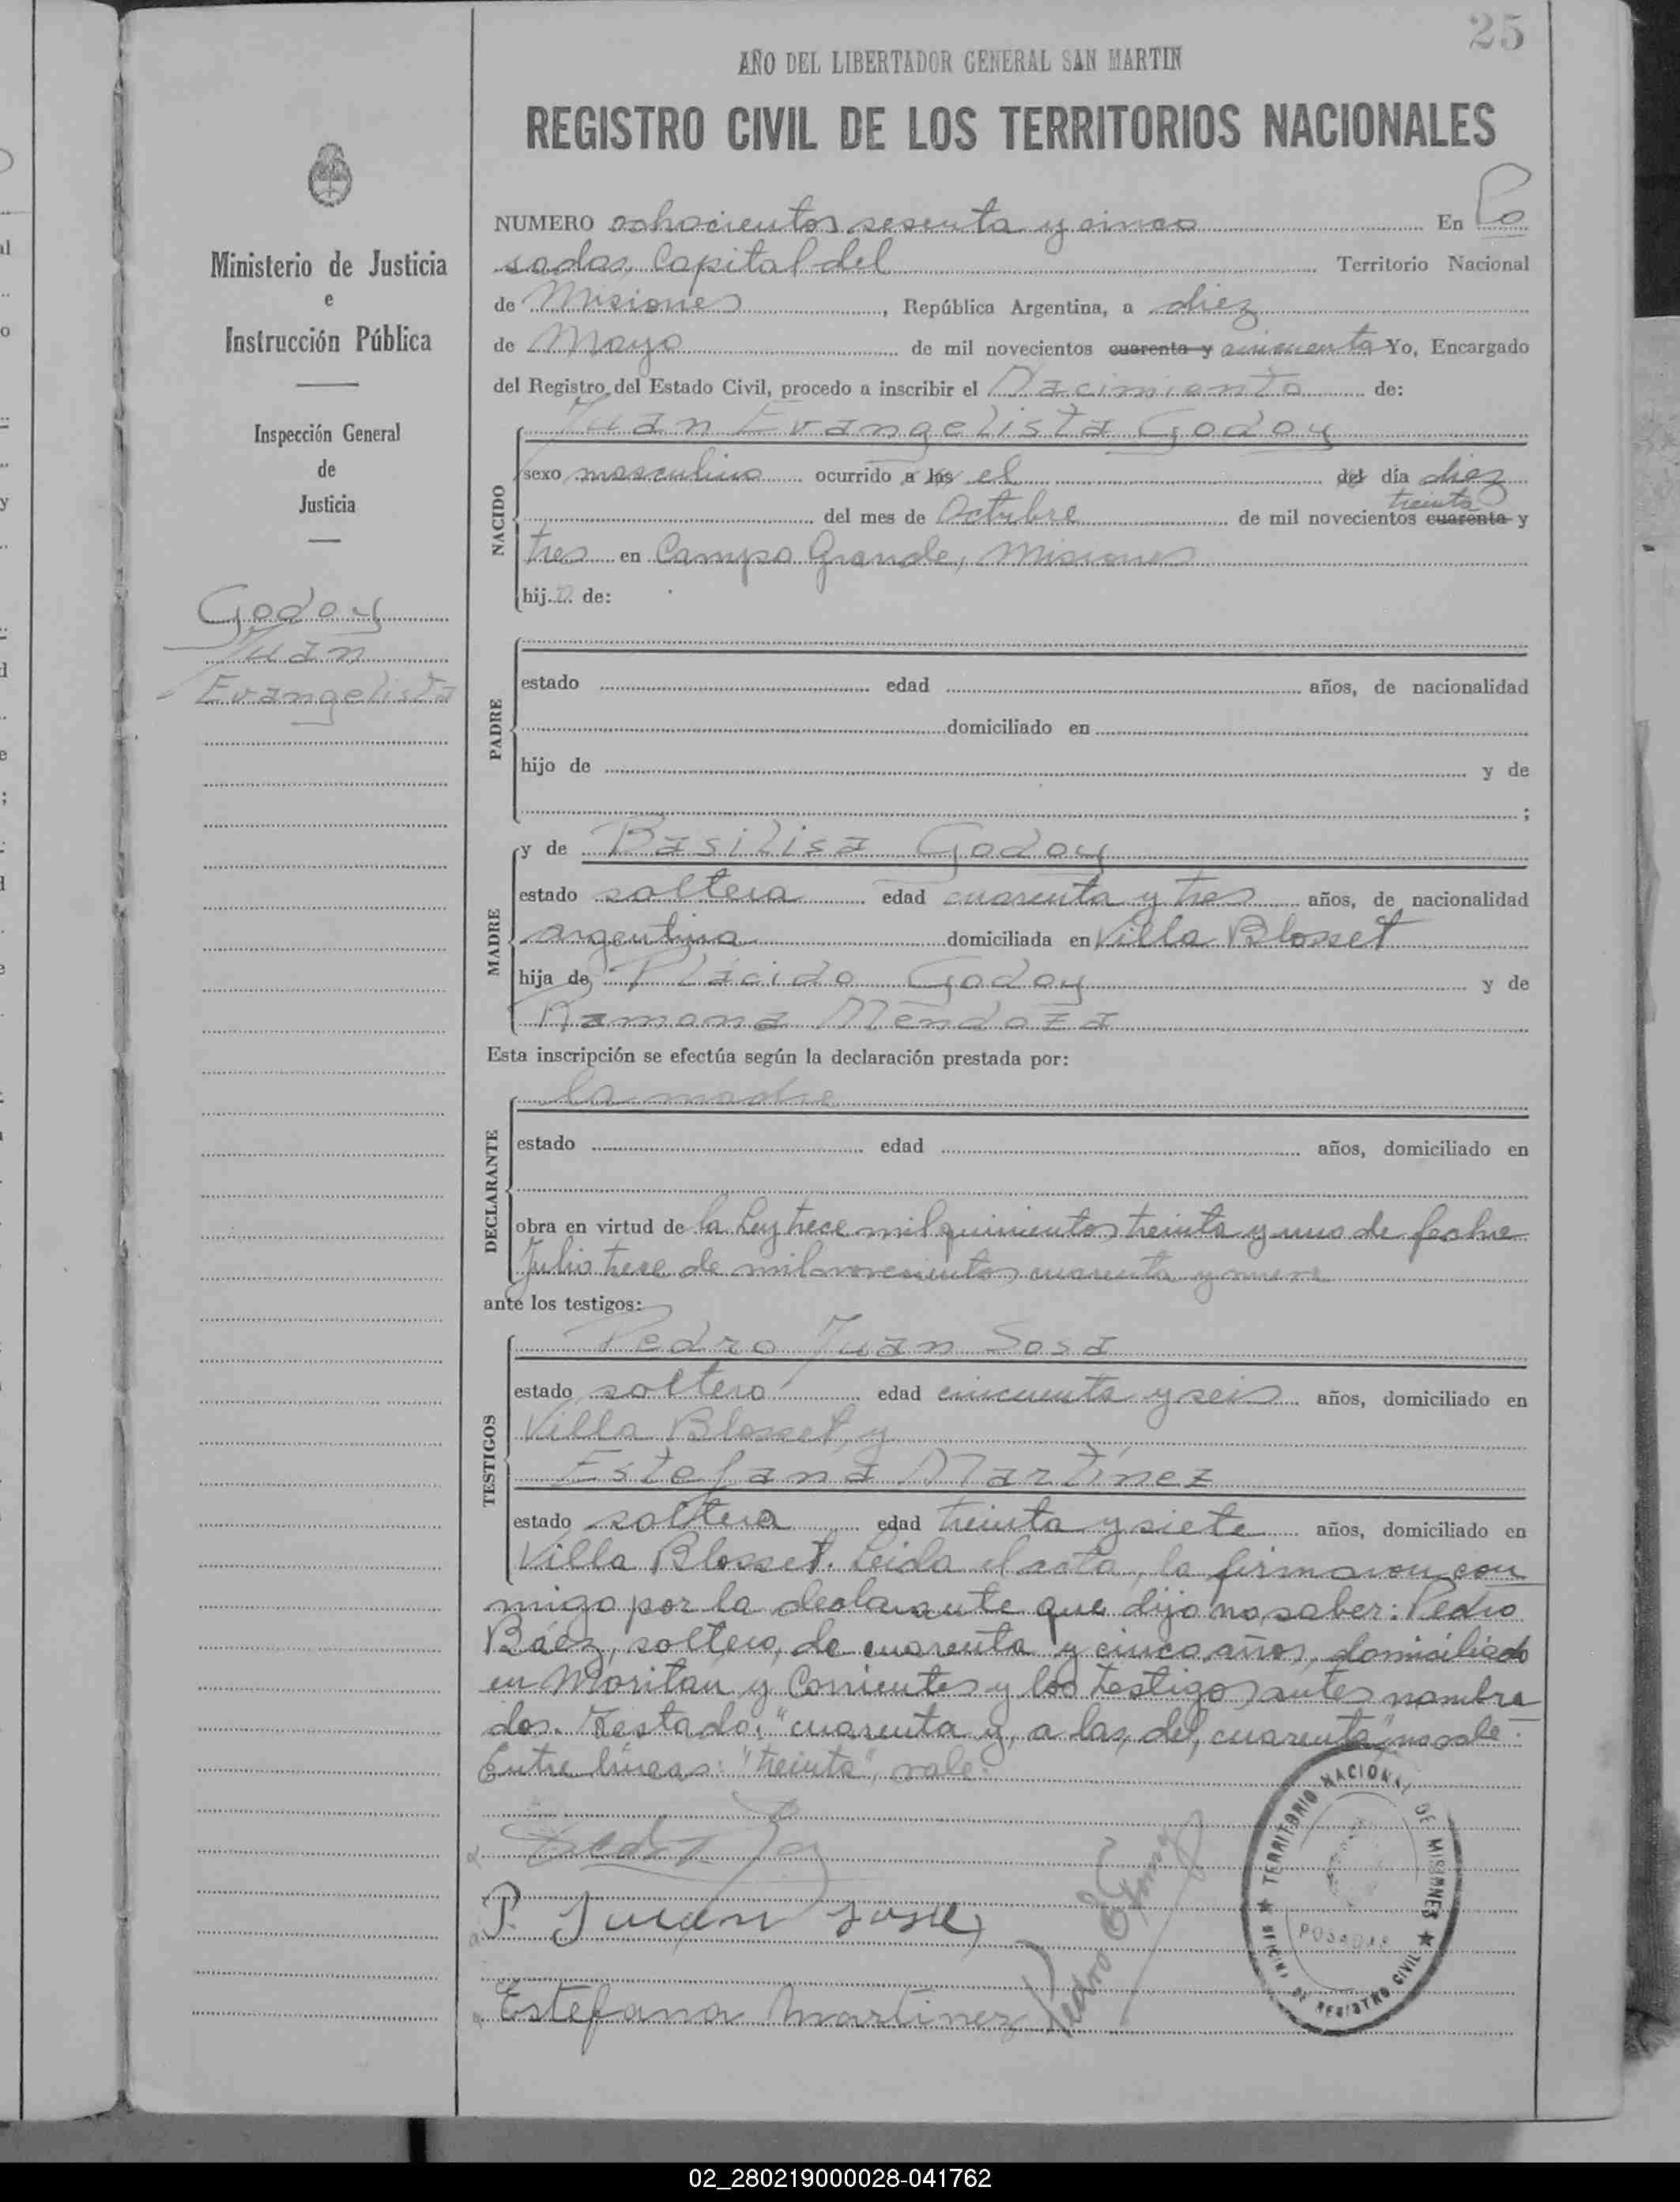 25
AÑO DEL LIBERTADOR GENERAL SAN MARTIN
REGISTRO CIVIL DE LOS TERRITORIOS NACIONALES
Ministerio de Justicia
e
Instrucción Pública
Inspección General
de
Justicia
Godoy
Juan
Evangelista
NUMERO ochocientos sesenta y cinco En Po
sadas, Capital del Territorio Nacional
de Misiones, República Argentina, a diez
de Mayo de mil novecientos cuarenta y cincuenta Yo, Encargado
del Registro del Estado Civil, procedo a inscribir el Nacimiento de:
Juan Evangelista Godoy
NACIDO
sexo masculino ocurrido a las el del día diez
treinta
del mes de Octubre de mil novecientos cuarenta y
tres en Campo Grande, Misiones
hijo de:
PADRE
estado edad años, de nacionalidad
domiciliado en
hijo de y de
;
MADRE
y de Basilisa Godoy
estado soltera edad cuarenta y tres años, de nacionalidad
argentina domiciliada en Villa Blosset
hija de Plácido Godoy y de
Ramona Mendoza
Esta inscripción se efectúa según la declaración prestada por:
DECLARANTE
la madre
estado edad años, domiciliado en
obra en virtud de la Ley trece mil quinientos treinta y uno de fecha
Julio trece de mil novecientos cuarenta y nueve
ante los testigos:
TESTIGOS
Pedro Juan Sosa
estado soltero edad cincuenta y seis años, domiciliado en
Villa Blosset, y
Estefana Martínez
estado soltera edad treinta y siete años, domiciliado en
Villa Blosset. Leida el acta, la firmaron con
migo por la declarante que dijo no saber: Pedro
Báez, soltero, de cuarenta y cinco años, domiciliado
en Moritan y Corrientes y los testigos antes nombra
dos. Testado: "cuarenta y, a las, del, cuarenta", no vale.
Entre líneas: "treinta", vale.
P. Juan Sosa
Estefana Martinez
Pedro
TERRITORIO NACIONAL DE MISIONES
POSADAS
OFICINA DE REGISTRO CIVIL
02_280219000028-041762